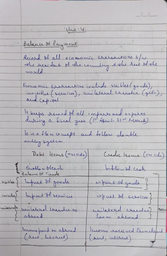 Unit V
Balance of Payment
Record of all economic transactions b/w
the resident of the country & the rest of the
world
Economic transactions include visibles (goods),
invisibles (services), unilateral transfers (gifts),
and capital
It keeps record of all imports and exports
during a fiscal year (1st April - 31st March)
It is a flow concept and follow double
entry system
Debit Items
Credit Items
Outflow
Inflow of cash
Balance of Trade
Import of goods
Export of goods
Import of services
Export of services
Unilateral transfers to
abroad
Unilateral transfers
from abroad
Income paid to abroad
Income received from abroad